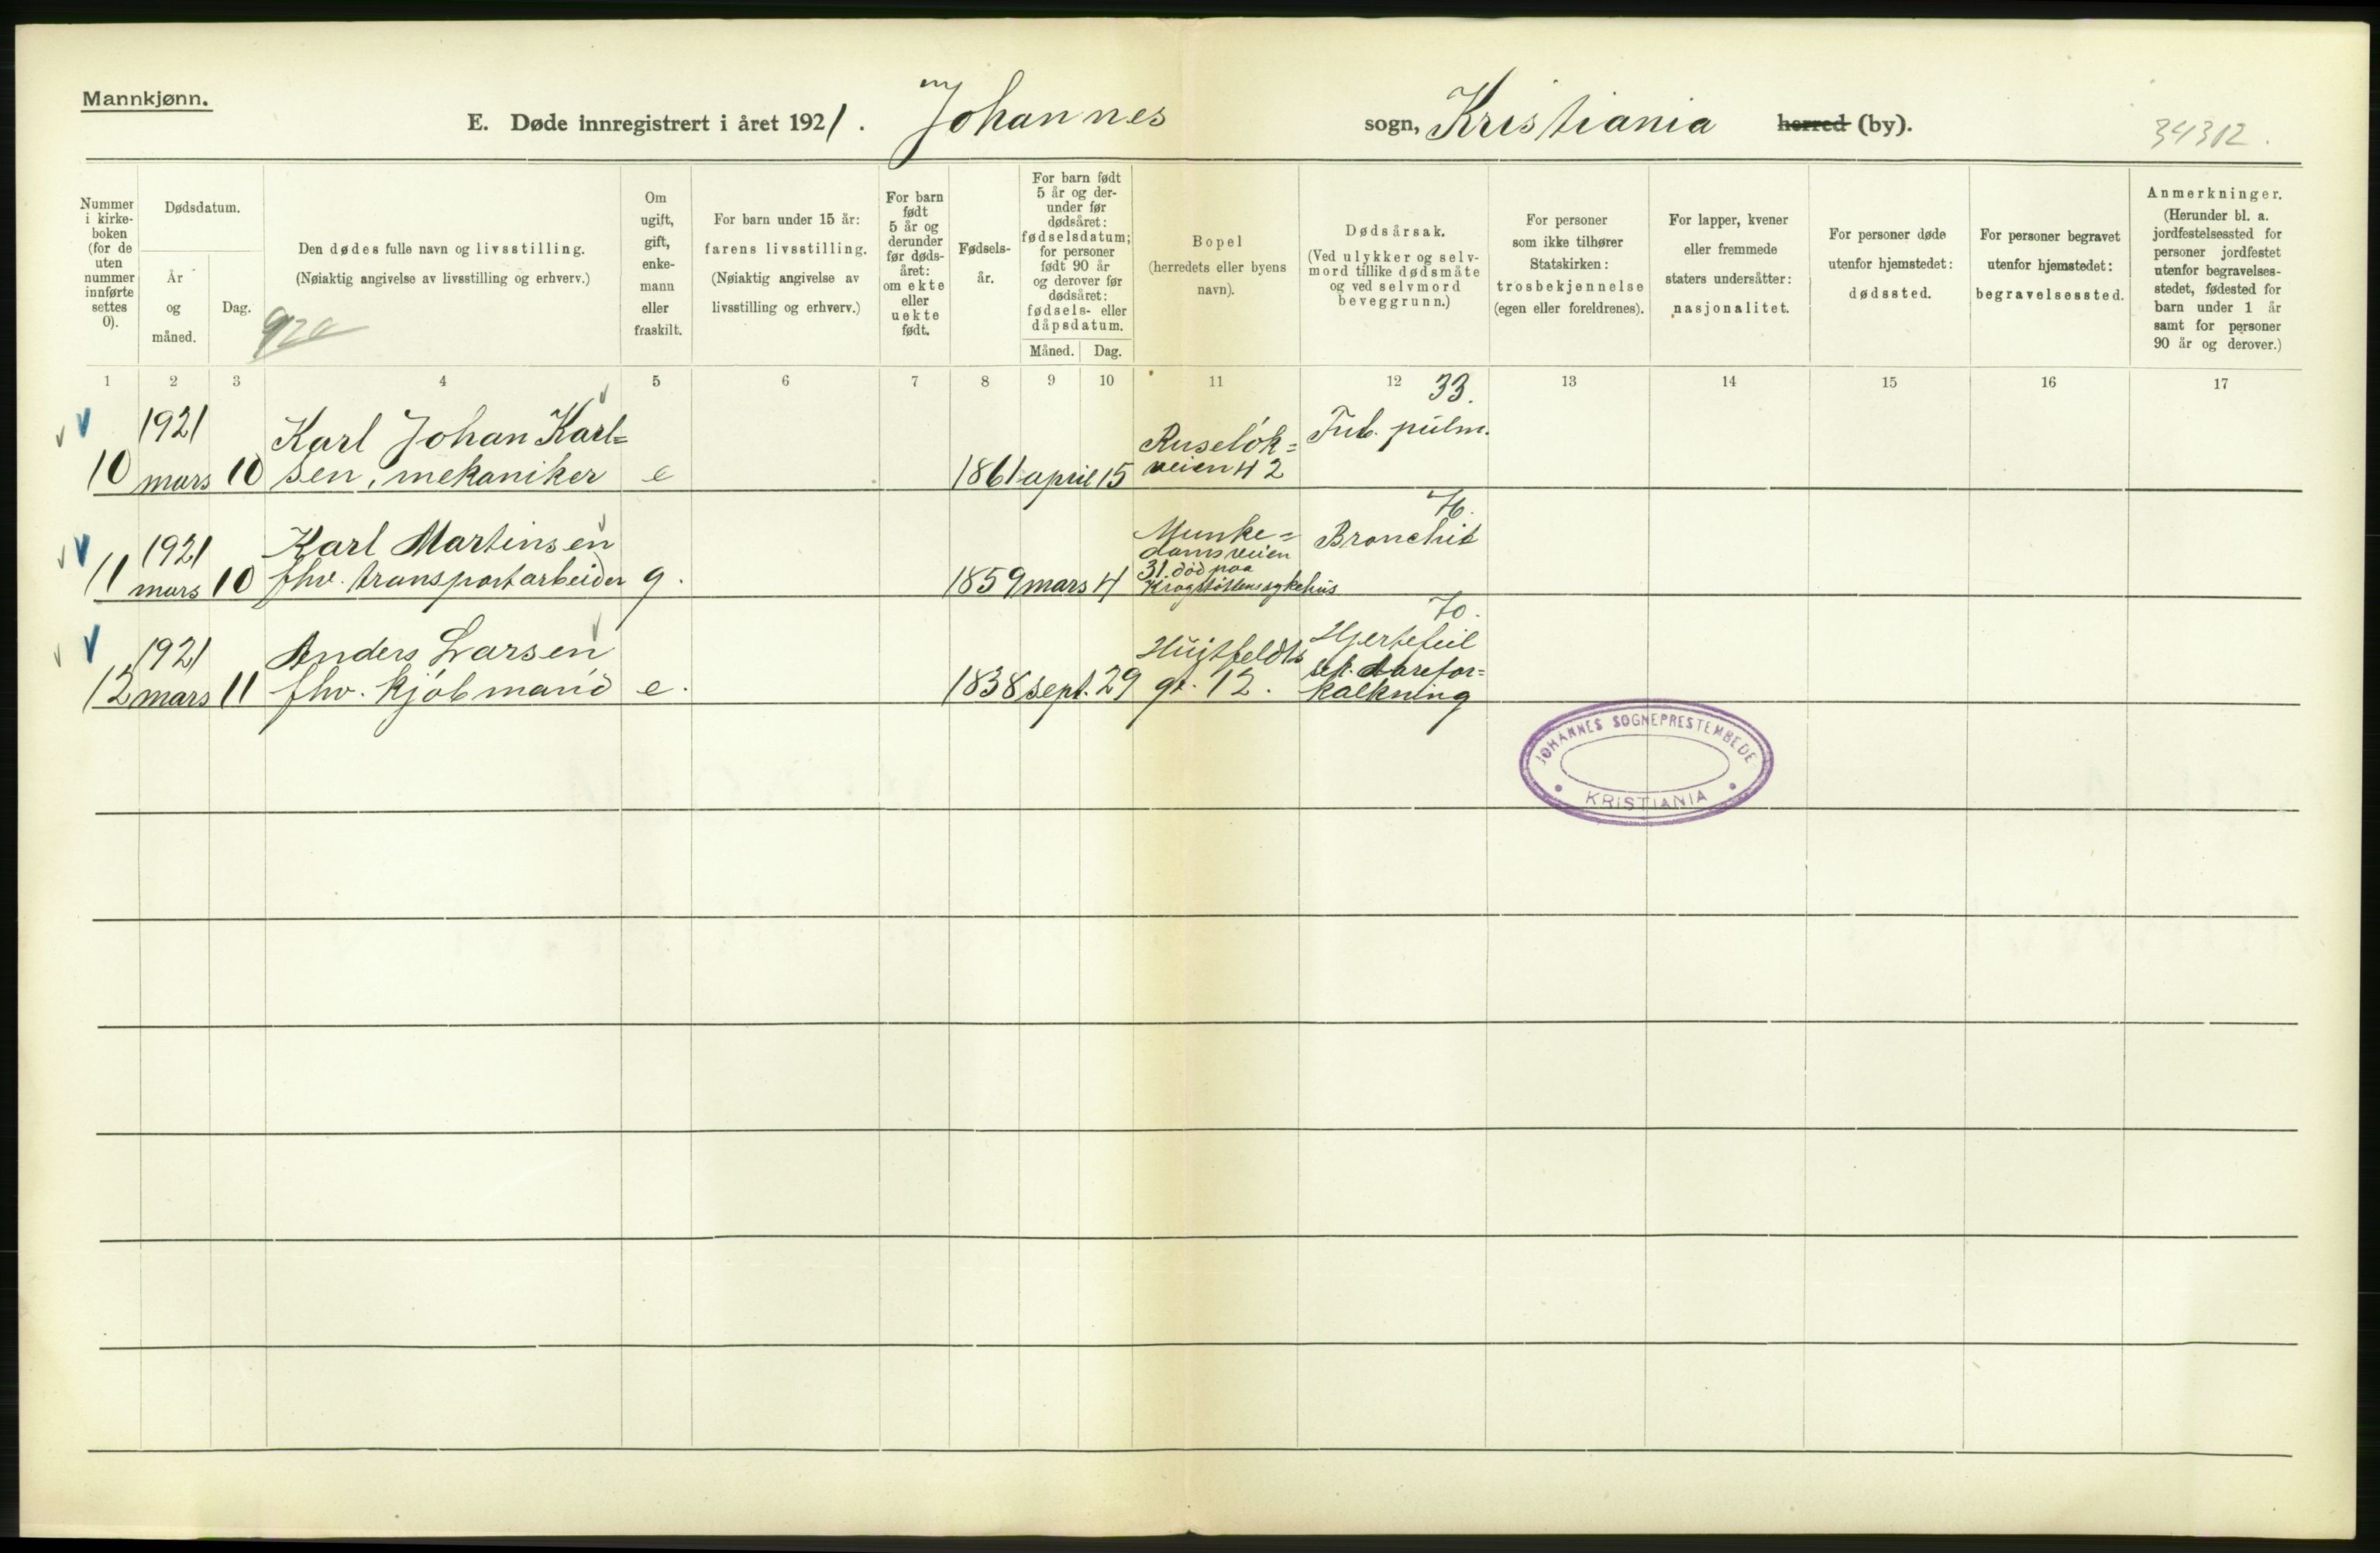 Mannkjønn.
E. Døde innregistrert i året 1921. Johannes sogn, Kristiania herred (by).
34312.
Nummer
i kirke-
boken
(for de
uten
nummer
innførte
settes
0).
Dødsdatum.
År
og
måned.
Dag.
Den dødes fulle navn og livsstilling.
(Nøiaktig angivelse av livsstilling og erhverv.)
Om
ugift,
gift,
enke-
mann
eller
fraskilt.
For barn under 15 år:
farens livsstilling.
(Nøiaktig angivelse av
livsstilling og erhverv.)
For barn
født
5 år og
derunder
før døds-
året:
om ekte
eller
uekte
født.
Fødsels-
år.
For barn født
5 år og der-
under før
dødsåret:
fødselsdatum;
for personer
født 90 år
og derover før
dødsåret:
fødsels- eller
dåpsdatum.
Måned. Dag.
Bopel
(herredets eller byens
navn).
Dødsårsak.
(Ved ulykker og selv-
mord tillike dødsmåte
og ved selvmord
beveggrunn.)
For personer
som ikke tilhører
Statskirken:
trosbekjennelse
(egen eller foreldrenes).
For lapper, kvener
eller fremmede
staters undersåtter:
nasjonalitet.
For personer døde
utenfor hjemstedet:
dødssted.
For personer begravet
utenfor hjemstedet:
begravelsessted.
Anmerkninger.
(Herunder bl. a.
jordfestelsessted for
personer jordfestet
utenfor begravelses-
stedet, fødested for
barn under 1 år
samt for personer
90 år og derover.)
1 2 3 4 5 6 7 8 9 10 11 12 13 14 15 16 17
33.
1921 Karl Johan Karl= Ruseløk= Tub. pulm.
10 mars 10 sen, mekaniker e 1861 april 15 veien 42
76.
1921 Karl Martinsen Munke= Bronchit
damsveien
31. død paa
11 mars 10 fhv. transportarbeider g. 1859 mars 4 Krogstøttens sykehus
70.
1921 Anders Larsen Huitfeldts Hjertefeil
sek. Aarefor=
12 mars 11 fhv. kjøbmand e. 1838 sept. 29 gt. 12. kalkning
JOHANNES SOGNEPRESTEMBEDE
KRISTIANIA